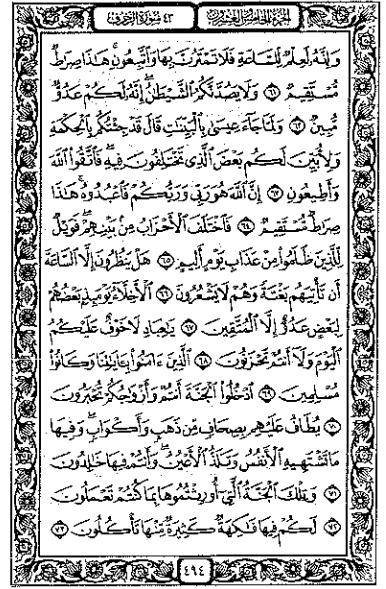 الجزء الخامس والعشرون
٤٣ سورة الزخرف
وَإِنَّهُۥ لَعِلْمٌ لِّلسَّاعَةِ فَلَا تَمْتَرُنَّ بِهَا وَٱتَّبِعُونِ ۚ هَٰذَا صِرَٰطٌ
مُّسْتَقِيمٌ ۝٦١ وَلَا يَصُدَّنَّكُمُ ٱلشَّيْطَٰنُ ۖ إِنَّهُۥ لَكُمْ عَدُوٌّ
مُّبِينٌ ۝٦٢ وَلَمَّا جَآءَ عِيسَىٰ بِٱلْبَيِّنَٰتِ قَالَ قَدْ جِئْتُكُم بِٱلْحِكْمَةِ
وَلِأُبَيِّنَ لَكُم بَعْضَ ٱلَّذِى تَخْتَلِفُونَ فِيهِ ۖ فَٱتَّقُوا۟ ٱللَّهَ
وَأَطِيعُونِ ۝٦٣ إِنَّ ٱللَّهَ هُوَ رَبِّى وَرَبُّكُمْ فَٱعْبُدُوهُ ۚ هَٰذَا
صِرَٰطٌ مُّسْتَقِيمٌ ۝٦٤ فَٱخْتَلَفَ ٱلْأَحْزَابُ مِنۢ بَيْنِهِمْ ۖ فَوَيْلٌ
لِّلَّذِينَ ظَلَمُوا۟ مِنْ عَذَابِ يَوْمٍ أَلِيمٍ ۝٦٥ هَلْ يَنظُرُونَ إِلَّا ٱلسَّاعَةَ
أَن تَأْتِيَهُم بَغْتَةً وَهُمْ لَا يَشْعُرُونَ ۝٦٦ ٱلْأَخِلَّآءُ يَوْمَئِذٍۭ بَعْضُهُمْ
لِبَعْضٍ عَدُوٌّ إِلَّا ٱلْمُتَّقِينَ ۝٦٧ يَٰعِبَادِ لَا خَوْفٌ عَلَيْكُمُ
ٱلْيَوْمَ وَلَآ أَنتُمْ تَحْزَنُونَ ۝٦٨ ٱلَّذِينَ ءَامَنُوا۟ بِـَٔايَٰتِنَا وَكَانُوا۟
مُسْلِمِينَ ۝٦٩ ٱدْخُلُوا۟ ٱلْجَنَّةَ أَنتُمْ وَأَزْوَٰجُكُمْ تُحْبَرُونَ
۝٧٠ يُطَافُ عَلَيْهِم بِصِحَافٍ مِّن ذَهَبٍ وَأَكْوَابٍ ۖ وَفِيهَا
مَا تَشْتَهِيهِ ٱلْأَنفُسُ وَتَلَذُّ ٱلْأَعْيُنُ ۖ وَأَنتُمْ فِيهَا خَٰلِدُونَ
۝٧١ وَتِلْكَ ٱلْجَنَّةُ ٱلَّتِىٓ أُورِثْتُمُوهَا بِمَا كُنتُمْ تَعْمَلُونَ
۝٧٢ لَكُمْ فِيهَا فَٰكِهَةٌ كَثِيرَةٌ مِّنْهَا تَأْكُلُونَ ۝٧٣
٤٩٤